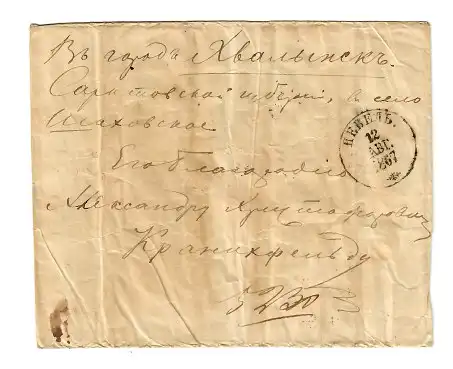 Въ городъ Хвалынскъ.
Саратовской губерніи, въ село
Его благородію
Александру Христофоровичу
Кранихфельду
НЕВЕЛЬ.
12
АВГ.
1867